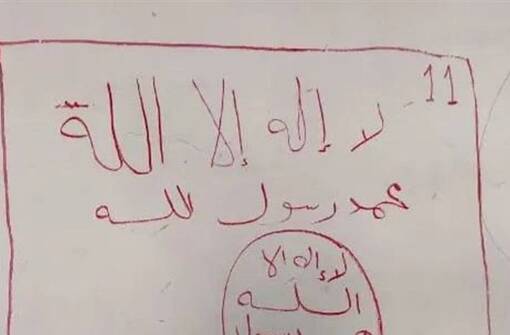 11 لا إله إلا اللة
محمد رسول الله
لا إله الا
الله